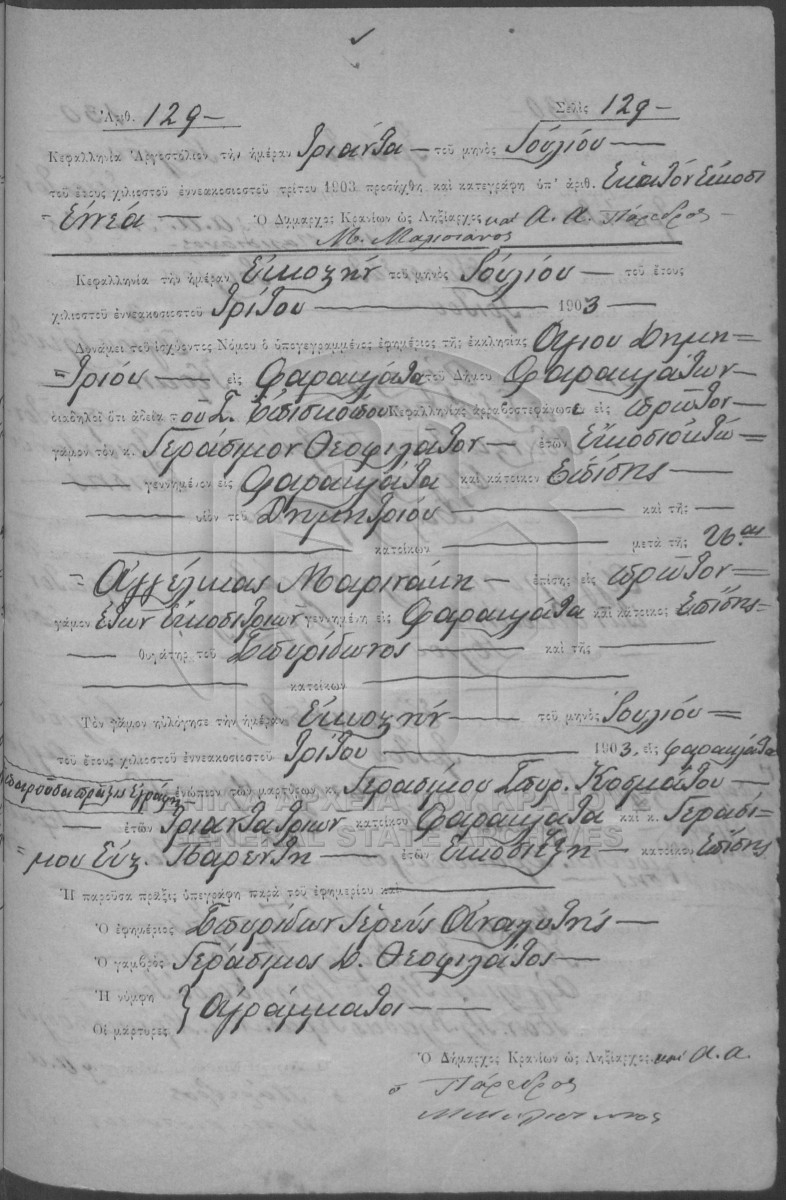 Ἀριθ. 129 — Σελὶς 129 —
Κεφαλληνία Ἀργοστόλιον τὴν ἡμέραν Τριάντα — τοῦ μηνὸς Ἰουλίου —
τοῦ ἔτους χιλιοστοῦ ἐννεακοσιοστοῦ τρίτου 1903 προσήχθη καὶ κατεγράφη ὑπ' ἀριθ. Ἑκατὸν Εἴκοσι
= Ἐννέα — Ὁ Δήμαρχος Κρανίων ὡς Ληξίαρχος καὶ Α. Α. Πάρεδρος —
Κεφαλληνία τὴν ἡμέραν Εἰκοστὴν τοῦ μηνὸς Ἰουλίου — τοῦ ἔτους
χιλιοστοῦ ἐννεακοσιοστοῦ Τρίτου — 1903 —
Δυνάμει τοῦ ἰσχύοντος Νόμου ὁ ὑπογεγραμμένος ἐφημέριος τῆς ἐκκλησίας Ἁγίου Δημη=
= τρίου — εἰς Φαρακλάτα τοῦ Δήμου Φαρακλάτων —
διαδηλοῖ ὅτι ἀδείᾳ τοῦ Σ. Ἐπισκόπου Κεφαλληνίας ἀρραβοστεφάνωσε εἰς πρῶτον —
γάμον τὸν κ. Γεράσιμον Θεοφιλάτον — ἐτῶν Εἰκοσιοκτώ =
— γεννημένον εἰς Φαρακλάτα καὶ κάτοικον Ἐπίσης —
— υἱὸν τοῦ Δημητρίου — καὶ τῆς —
— κατοίκων — μετὰ τῆς
= Ἀγγέλικας Μαρινάκη — ἐπίσης εἰς πρῶτον =
γάμον ἐτῶν Εἰκοσιτριῶν γεννημένη εἰς Φαρακλάτα καὶ κάτοικος Ἐπίσης =
— θυγάτηρ τοῦ Σπυρίδωνος — καὶ τῆς —
— κατοίκων —
Τὸν γάμον ηὐλόγησε τὴν ἡμέραν Εἰκοστὴν — τοῦ μηνὸς Ἰουλίου =
τοῦ ἔτους χιλιοστοῦ ἐννεακοσιοστοῦ Τρίτου — 1903, εἰς Φαρακλάτα
ἡ παροῦσα πρᾶξις ἐγράφη ἐνώπιον τῶν μαρτύρων κ. Γερασίμου Σπυρ. Κοσμάτου —
— ἐτῶν Τριαντατριῶν κατοίκου Φαρακλάτα καὶ κ. Γερασί-
= μου Εὐζ. — ἐτῶν Εἰκοσιέξη — κατοίκου Ἐπίσης
Ἡ παροῦσα πρᾶξις ὑπεγράφη παρὰ τοῦ ἐφημερίου καὶ —
Ὁ ἐφημέριος Σπυρίδων Ἱερεὺς Ἀναλυτής —
Ὁ γαμβρὸς Γεράσιμος Δ. Θεοφιλάτος —
Ἡ νύμφη
Οἱ μάρτυρες } Ἀγράμματοι —
Ὁ Δήμαρχος Κρανίων ὡς Ληξίαρχος καὶ Α. Α.
ὁ Πάρεδρος
ΓΕΝΙΚΑ ΑΡΧΕΙΑ ΤΟΥ ΚΡΑΤΟΥΣ
GENERAL STATE ARCHIVES